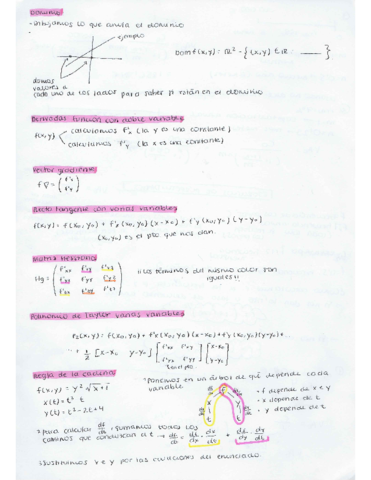 Dominio
- Dibujamos lo que anula el dominio
ejemplo
Dom f(x,y) = ℝ² - {(x,y) t.q. ____ }
damos
valores a
cada uno de los lados para saber si están en el dominio
Derivadas función con doble variable
f(x,y)
calculamos f'x (la y es una constante)
calculamos f'y (la x es una constante)
Vector gradiente
(f'x
f'y)
Recta tangente con varias variables
f(x,y) = f(x₀,y₀) + f'x(x₀,y₀)(x-x₀) + f'y(x₀,y₀)(y-y₀)
(x₀,y₀) es el pto que nos dan.
Matriz Hessiana
Hg =
!!Los términos del mismo color son
iguales!!
Polinomio de Taylor varias variables
P₂(x,y) = f(x₀,y₀) + f'x(x₀,y₀)(x-x₀) + f'y(x₀,y₀)(y-y₀) +
+ 1/2 [x-x₀ y-y₀] [f'xx f'xy f'yx f'yy] [x-x₀ y-y₀]
Regla de la cadena
* Ponemos en un árbol de qué depende cada
variable
x(t) = t³ t
y(t) = t² - 2t + 4
• f depende de x e y
• x depende de t
• y depende de t
* para calcular df/dt, sumamos todos los
caminos que conduzcan a t → df/dt = df/dx · dx/dt + df/dy · dy/dt
* Sustituimos x e y por las ecuaciones del enunciado.